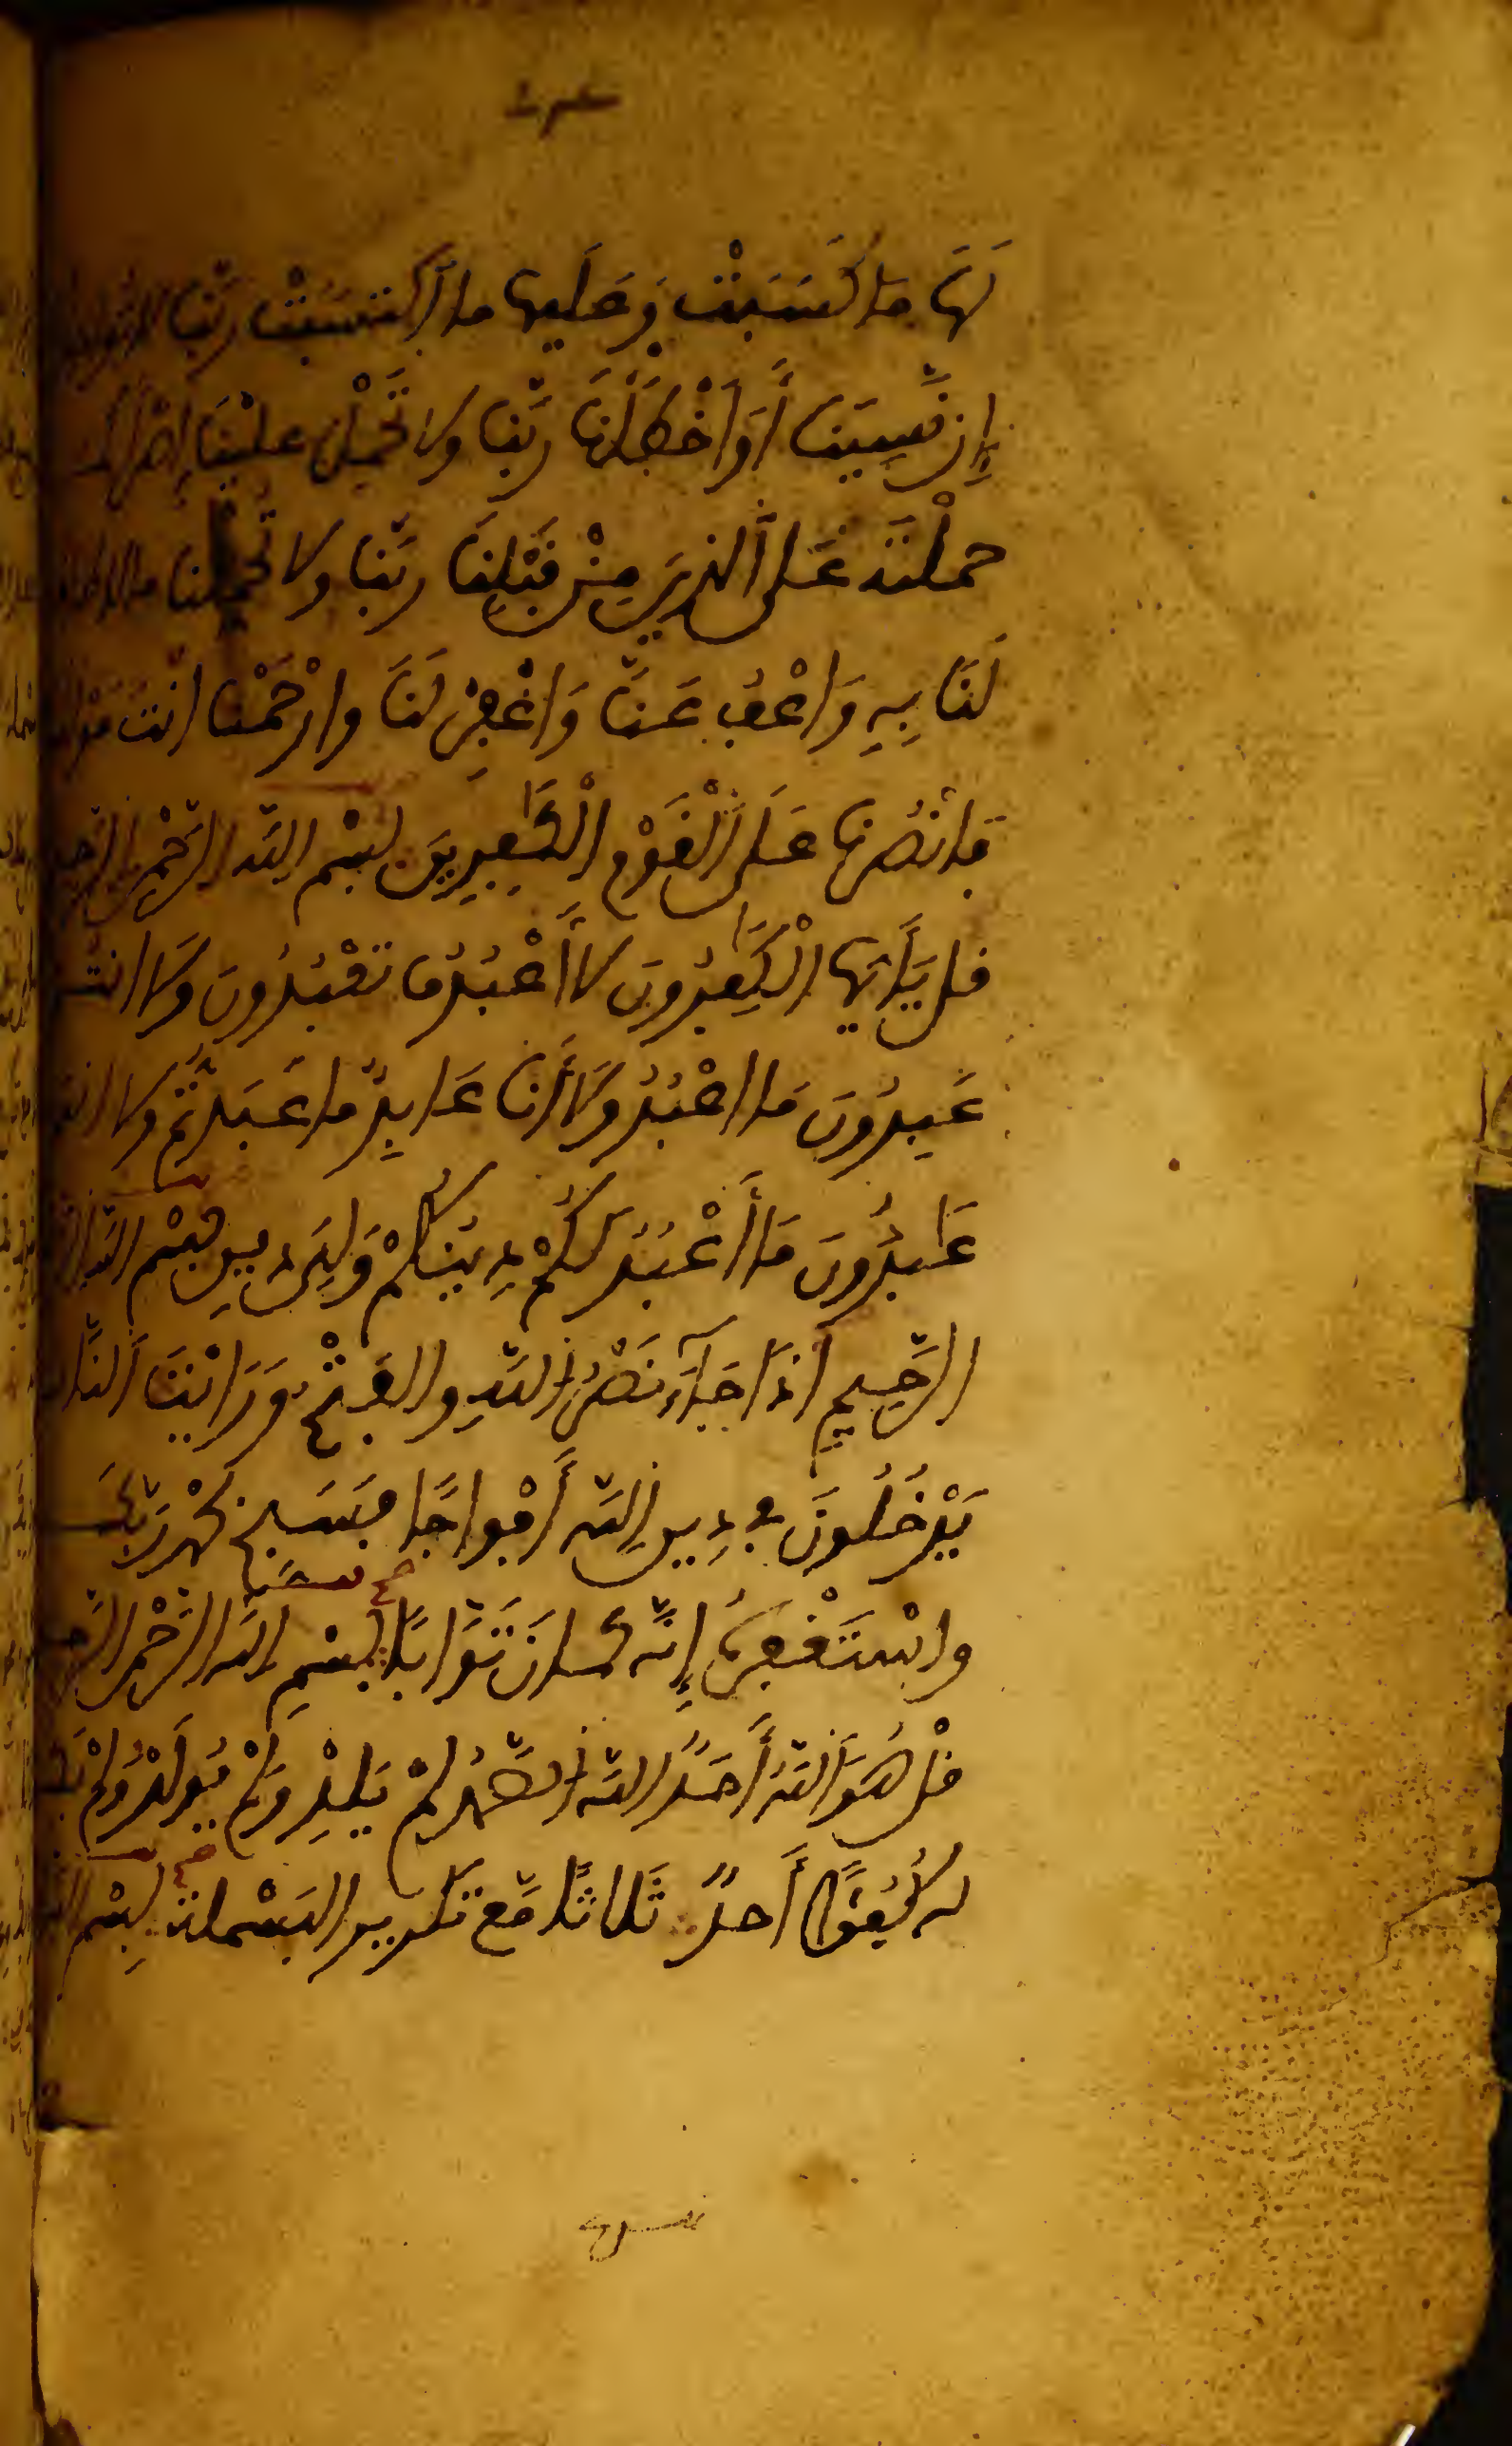 لَهَا مَا كَسَبَتْ وَعَلَيها ما اَكتسَبَتْ ربّنا لا
إِن نَّسِينَا أَوَ اَخْطَأْنَا رَبّنا ولا تَحْمِلْ علَيْنَا إِصْراً كما
حملْتَه عَلَى ألذِينَ مِنْ قَبْلِنَا ربّنا ولا تحمّلنا ما لا طاقة
لَنَا بِهِ وَاعْفُ عَنَّا وَاغْفِرْ لَنَا وارْحَمْنا انتَ مَوْلانا
فَانصُرْنا عَلَى ألْقَوْمِ اِلْكَٰفِرِينَ بسْم اللّه الرَّحْمن الرّحيم
قل يَٰأَيّها اَلْكَٰفِرُونَ لا أَعْبُدُ ما تعْبُدُونَ وَلا انتُم
عَٰبِدُونَ مَا اعْبُدُ وَلا أَنا عَابِدٌ مّا عَبَدتُّمْ ولا انتم
عَٰبِدُونَ مَا أَعْبُدُ لَكُمْ دِينُكُمْ وَلِيَ دِينِ بسْم اللّه
الرَّحِيمِ اذَا جَآءَ نَصْرُ اللّهِ والْفَتْحُ وَرَايْتَ ألنَّاسَ
يَدْخُلُونَ في دِينِ اِللّه أَفْواجًا فسَبح بحمْد ربّكَ
واسْتَغْفِرْهُ إِنّه كانَ تَوَّابًا بِسْمِ اللّه الرَّحْمن الرّحيم
قلْ هُوَ اَللّهُ أَحَدٌ اللّه اُلصَّمَدُ لمْ يَلِدْ وَلَمْ يُولَدْ وَلَمْ يَكُن
له كُفُؤًا أَحدٌ ثَلاثًا مَّعَ تكرير البَسْملة بِسْم اللّه